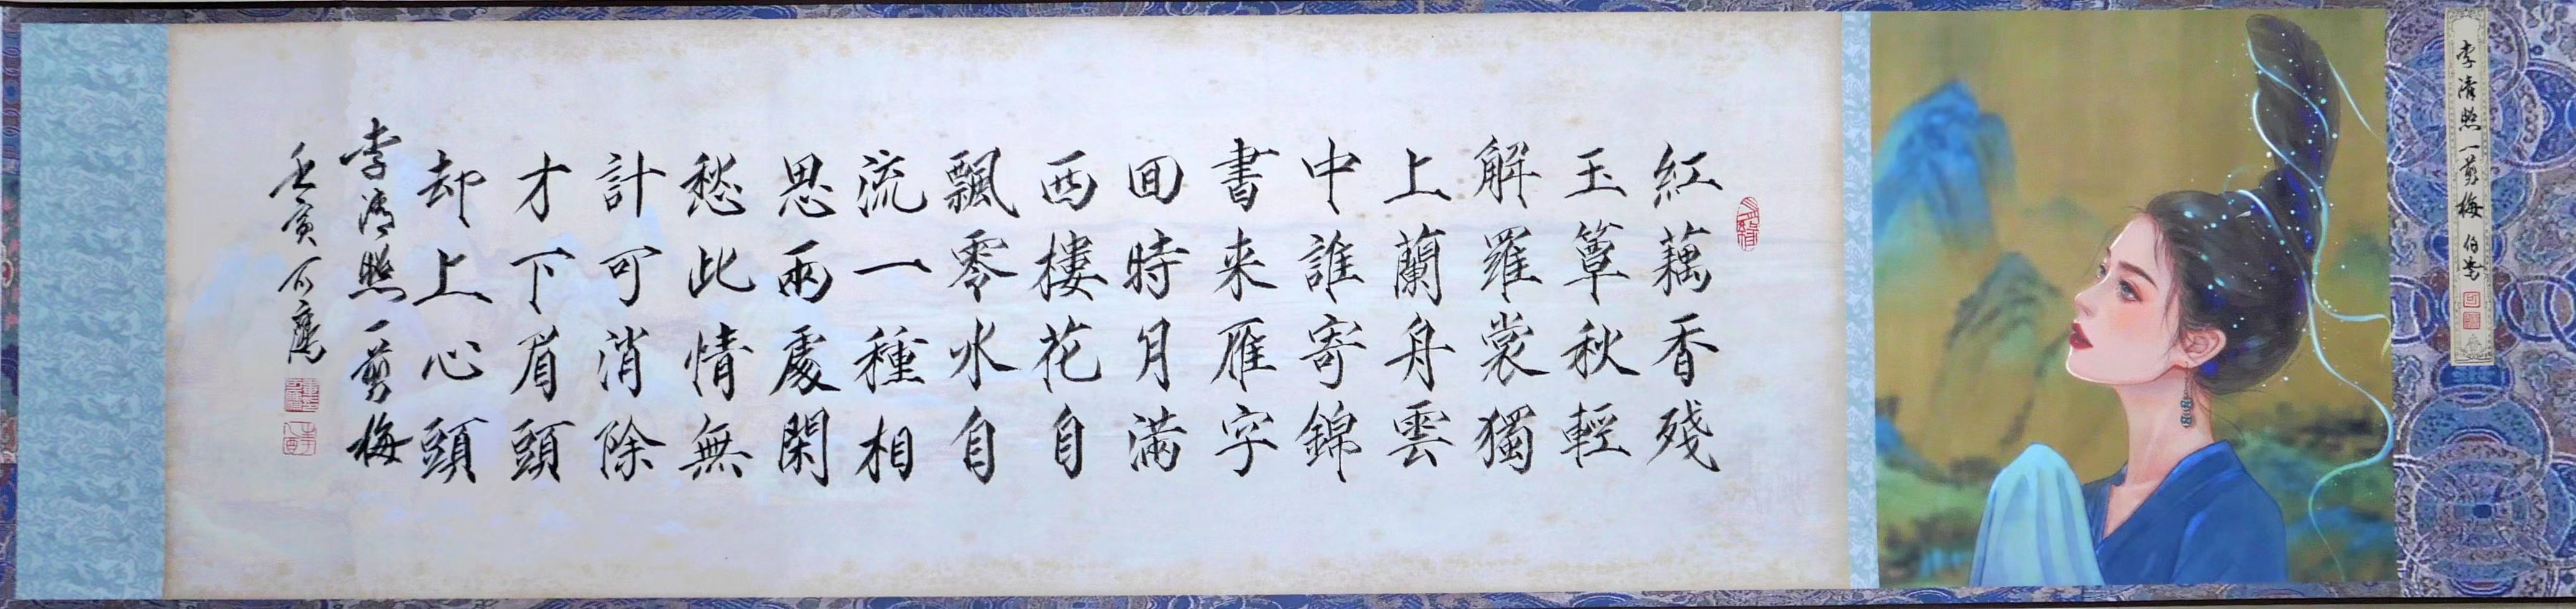 李清照一剪梅
紅藕香殘
玉簟秋輕
解羅裳獨
上蘭舟雲
中誰寄錦
書来雁字
回時月滿
西樓花自
飄零水自
流一種相
思兩處閑
愁此情無
計可消除
才下眉頭
却上心頭
李清照一剪梅
壬寅